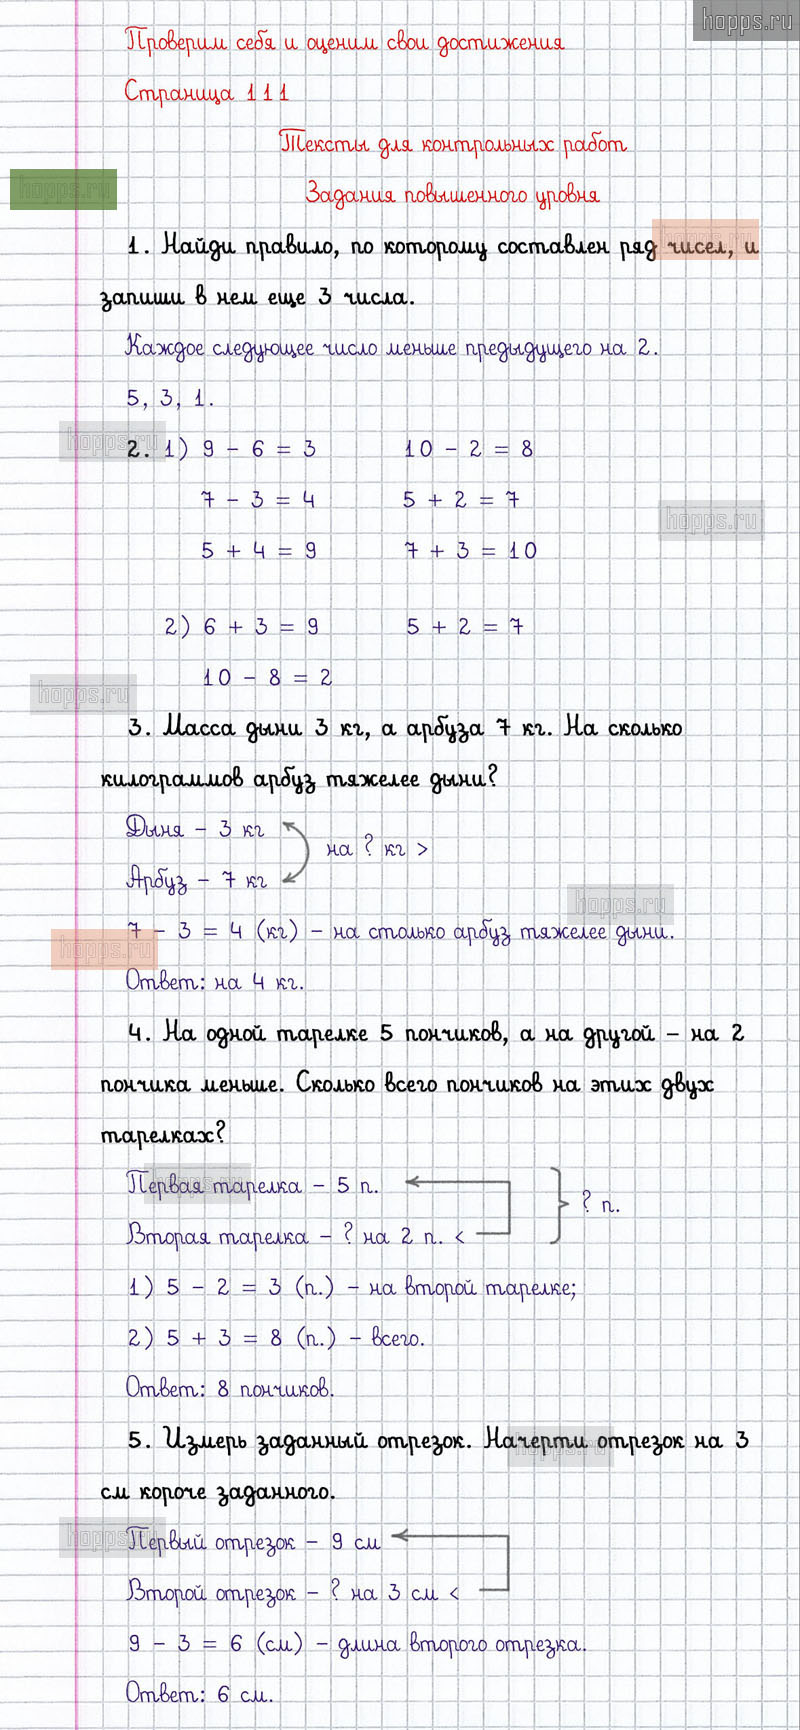 hopps.ru
Проверим себя и оценим свои достижения
Страница 111
Тексты для контрольных работ
hopps.ru
Задания повышенного уровня
hopps.ru
1. Найди правило, по которому составлен ряд чисел, и
запиши в нем еще 3 числа.
Каждое следующее число меньше предыдущего на 2.
5, 3, 1.
hopps.ru
2. 1) 9 - 6 = 3 10 - 2 = 8
7 - 3 = 4 5 + 2 = 7
hopps.ru
5 + 4 = 9 7 + 3 = 10
2) 6 + 3 = 9 5 + 2 = 7
10 - 8 = 2
hopps.ru
3. Масса дыни 3 кг, а арбуза 7 кг. На сколько
килограммов арбуз тяжелее дыни?
Дыня - 3 кг
на ? кг >
Арбуз - 7 кг
hopps.ru
7 - 3 = 4 (кг) - на столько арбуз тяжелее дыни.
hopps.ru
Ответ: на 4 кг.
4. На одной тарелке 5 пончиков, а на другой - на 2
пончика меньше. Сколько всего пончиков на этих двух
тарелках?
hopps.ru
Первая тарелка - 5 п.
? п.
Вторая тарелка - ? на 2 п. <
1) 5 - 2 = 3 (п.) - на второй тарелке;
2) 5 + 3 = 8 (п.) - всего.
Ответ: 8 пончиков.
5. Измерь заданный отрезок. Начерти отрезок на 3
hopps.ru
см короче заданного.
hopps.ru
Первый отрезок - 9 см
Второй отрезок - ? на 3 см <
9 - 3 = 6 (см) - длина второго отрезка.
Ответ: 6 см.